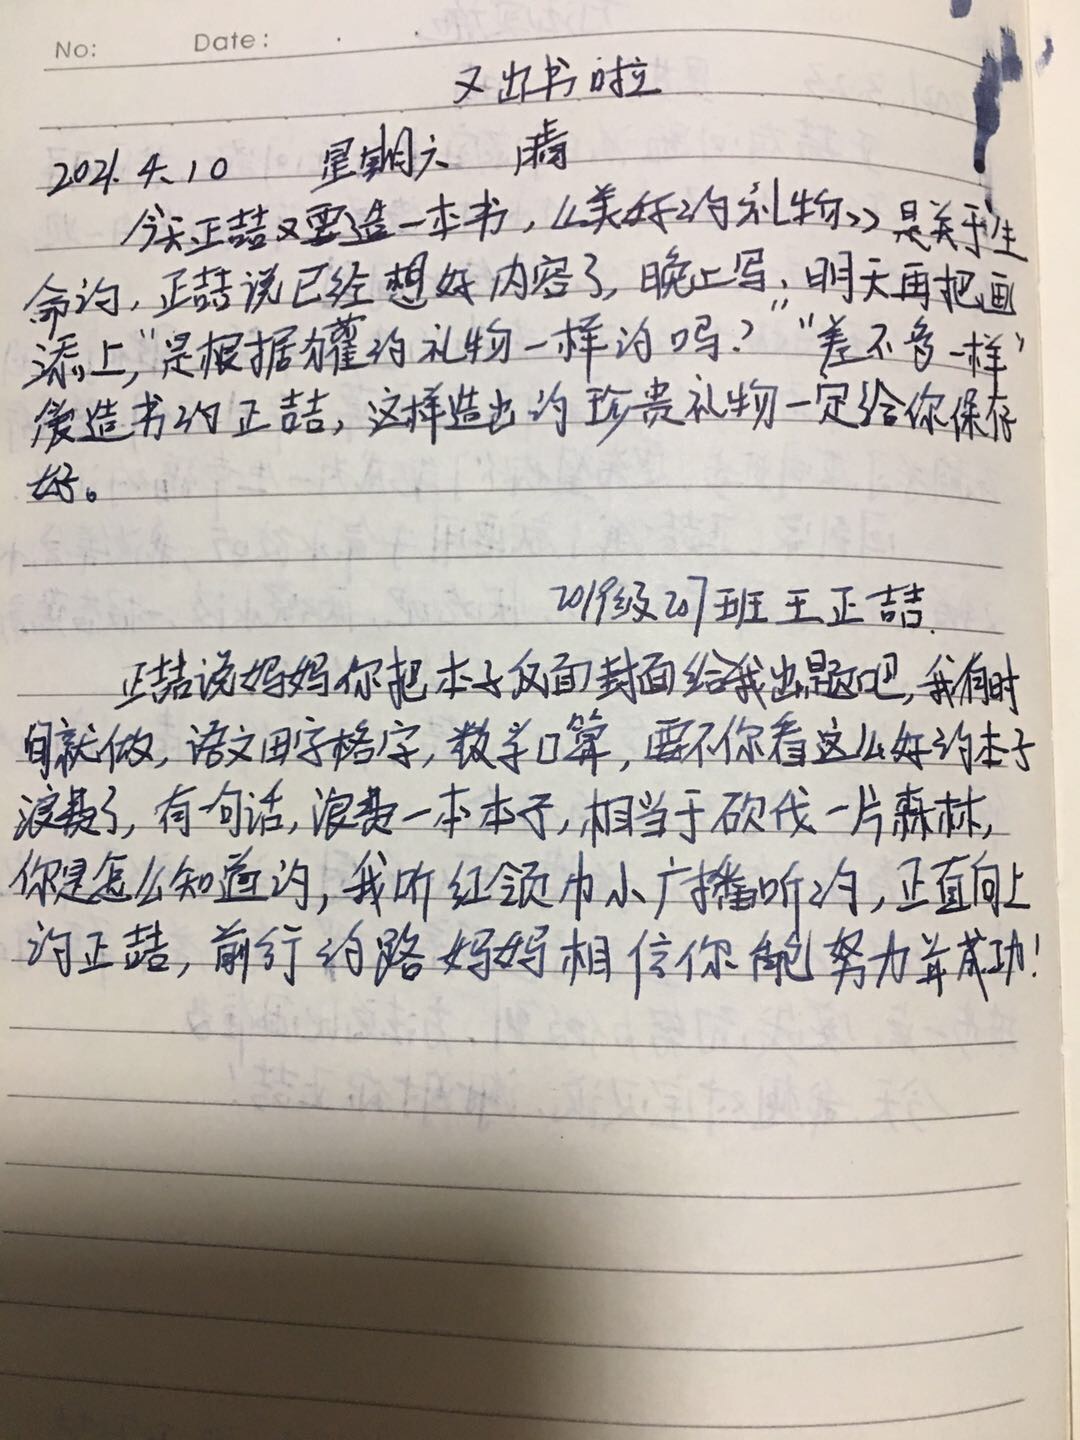 No: Date:
又出书啦
2021.4.10 星期六 晴
今天正喆又要造一本书，《美好的礼物》是关于生
命的，正喆说已经想好内容了，晚上写，明天再把画
添上，"是根据獾的礼物一样的吗？""差不多一样"
爱造书的正喆，这样造出的珍贵礼物一定给你保存
好。
2019级207班王正喆.
正喆说妈妈你把本子反面封面给我出题吧，我有时
间就做，语文田字格字，数学口算，要不你看这么好的本子
浪费了，有句话，浪费一本本子，相当于砍伐一片森林，
你是怎么知道的，我听红领巾小广播听的，正直向上
的正喆，前行的路妈妈相信你能努力并成功！